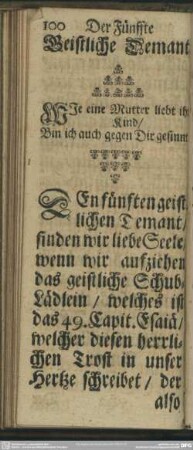 100 Der Fünffte
Geistliche Demant
WJe eine Mutter liebt ihr
Kind/
Bin ich auch gegen Dir gesinnt
DEn fünften geist-
lichen Demant/
finden wir liebe Seele
wenn wir aufziehen
das geistliche Schub-
Lädlein / welches ist
das 49. Capit. Esaiä/
welcher diesen herrli-
chen Trost in unser
Hertze schreibet / der
also